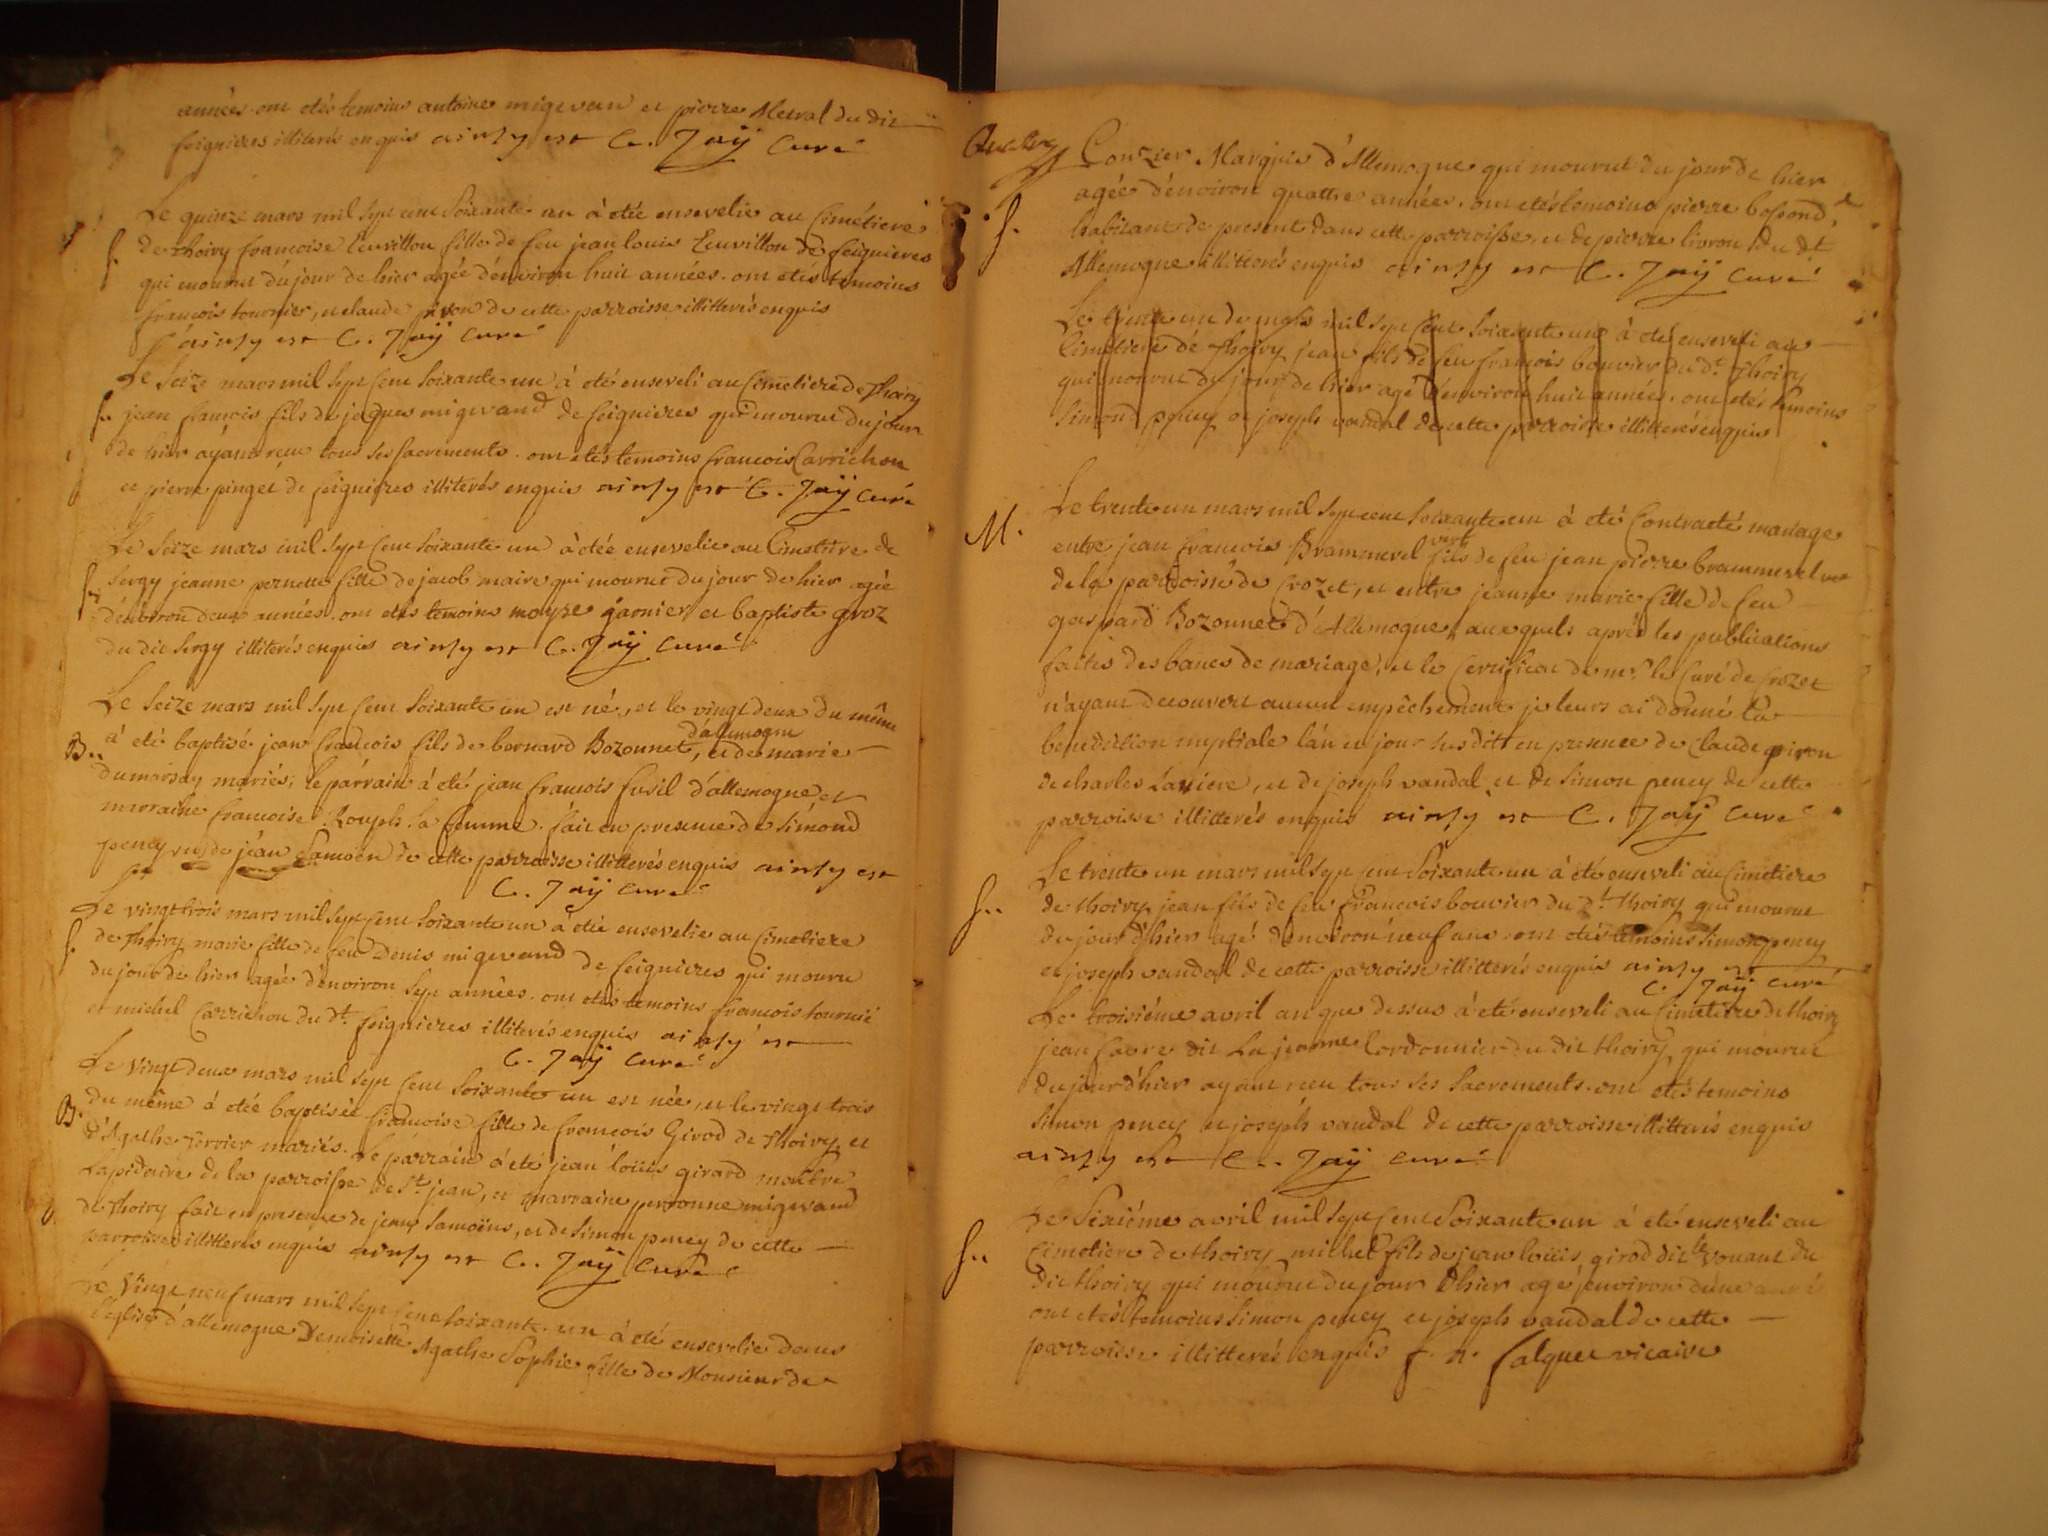 années. ont etés temoins antoine migevan et pierre Metral du dit
feignieres illiterés enquis ainsy est C. Jaÿ Curé
Le quinze mars mil sept cent soixante un à etée ensevelie au Cimétiere
S. de thoiry francoise Leuvillou fille de feu jean louis Leuvillou de feignieres
qui mourut du jour de hier agée d'environ huit années. ont etés temoins
francois tournier, et claude piron de cette parroisse illitterés enquis
ainsy est C. Jaÿ Curé
Le Seize mars mil sept Cent Soixante un à eté enseveli au Cimetiere de Thoiry
S.. jean francois fils de jacques migevand de feignieres qui mourut du jour
de hier ayant recu tous ses sacrements. ont etés temoins francois Carrichon
et pierre pinget de feignieres illiterés enquis ainsy est C. Jaÿ Curé
Le Seize mars mil sept Cent soixante un à etée ensevelie au Cimetiere de
S. Sergy jeanne pernette fille de jacob maire qui mourut du jour de hier agée
d'environ deux années. ont etés temoins moyse garnier et baptiste groz
du dit Sergy illiterés enquis ainsy est C. Jaÿ Curé
Le Seize mars mil sept Cent Soixante un est né, et le vingt deux du même
B.. à eté baptisé jean francois fils de bernard Bozonnet d'allemogne, et de marie
dumarsay mariés; le parrain à eté jean francois fusil d'allemogne et
marraine francoise Rouph sa femme. fait en presence de simond
pency et de jean Samoën de cette parroisse illitterés enquis ainsy est
C. Jaÿ Curé
Le vingt trois mars mil sept Cent soixante un à etée ensevelie au Cimetiere
S. de Thoiry marie fille de feu Denis migevand de feignieres qui mouru
du jour de hier agée d'environ sept années. ont etés temoins francois tournié
et michel Carrichon du dt. feignieres illiterés enquis ainsy est
C. Jaÿ Curé
Le Vingt deux mars mil sept Cent Soixante un est née, et le vingt trois
B. du même à etée baptisée francoise fille de francois Girod de Thoiry, et
d'Agathe Terrier mariés. Le parrain à eté jean loüis girard maitre
Lapidaire de la parroisse de St. jean, et marraine peronne migevand
de Thoiry fait en presence de jean Samoëns, et de simon pency de cette
parroisse illitterés enquis ainsy est C. Jaÿ Curé
Le Vingt neuf mars mil sept Cent soixante un à eté ensevelie dans
l'eglise d'allemogne Demoiselle Agathe Sophie fille de Monsieur de
Conzier Marquis d'Allemogne qui mourut du jour de hier
S. agée d'environ quattre années. ont etés temoins pierre bossond,
habitant de present dans cette parroisse, et de pierre livron du dt.
Allemogne illitterés enquis ainsy est C. Jaÿ Curé
Le trente un de mars mil sept Cent soixante un à eté enseveli au
Cimetiere de Thoiry jean fils de feu francois bouvier du dt. Thoiry
qui mourut du jour de hier agé d'environ huit années. ont etés temoins
Simond pency et joseph vandal de cette parroisse illitterés enquis
M. Le trente un mars mil sept cent soixante un à eté Contracté mariage
entre jean francois Brammerel vert fils de feu jean pierre brammerel vert
de la parroisse de Crozet, et entre jeanne marie fille de feu
gaspard Bozonnet d'Allemogne, auxquels aprés les publications
faites des bancs de mariage, et le Certificat de mr. le Curé de Crozet
n'ayant decouvert aucun empêchement je leurs ai donné la
benediction nuptiale l'an et jour susdits en presence de claude piron
de charles Lariviere, et de joseph vandal et de simon pency de cette
parroisse illitterés enquis ainsy est C. Jaÿ Curé
Le trente un mars mil sept cent soixante un à eté enseveli au Cimetiere
S.. de thoiry jean fils de feu francois bouvier du dt. thoiry qui mourut
du jour d'hier agé d'environ neuf ans. ont etés temoins simon pency
et joseph vandal de cette parroisse illitterés enquis ainsy est
C. Jaÿ Curé
Le troisiéme avril an que dessus à eté enseveli au Cimetiere de thoiry
jean favre dit La jeanne Cordonnier du dit thoiry, qui mourut
du jour d'hier ayant recu tous ses sacrements. ont etés temoins
simon pency et joseph vandal de cette parroisse illitterés enquis
ainsy est C. Jaÿ Curé
Le Sixiéme avril mil sept Cent Soixante un à eté enseveli au
S.. Cimetiere de thoiry michel fils de jean loüis girod dit le vouant du
dit thoiry qui mourut du jour d'hier agé environ d'une année
ont etés temoins simon pency et joseph vandal de cette
parroisse illitterés enquis f. n. falquet vicaire